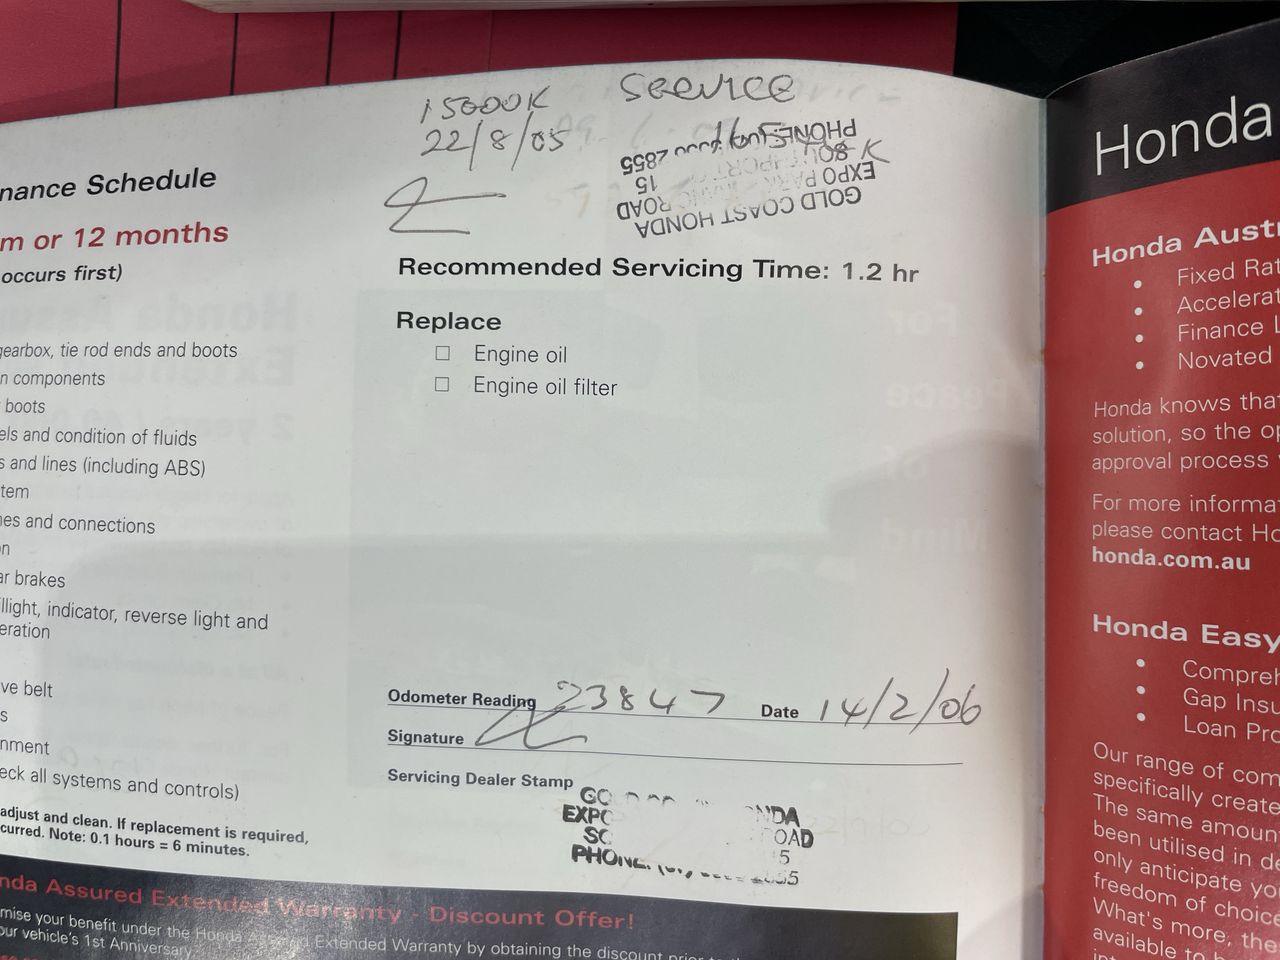 15000K
Service
22/8/05
PHONE
2855
15
EXPO PARK
ROAD
GOLD COAST HONDA
nance Schedule
m or 12 months
occurs first)
gearbox, tie rod ends and boots
n components
boots
els and condition of fluids
s and lines (including ABS)
tem
nes and connections
on
ar brakes
illight, indicator, reverse light and
eration
ve belt
s
nment
eck all systems and controls)
adjust and clean. If replacement is required,
curred. Note: 0.1 hours = 6 minutes.
Recommended Servicing Time: 1.2 hr
Replace
Engine oil
Engine oil filter
Odometer Reading 23847 Date 14/2/06
Signature
Servicing Dealer Stamp
GO NDA
EXPO
SO ROAD
5
PHONE
nda Assured Extended Warranty - Discount Offer!
mise your benefit under the Honda Assured Extended Warranty by obtaining the discount prior to
our vehicle's 1st Anniversary.
Honda
Honda Austr
Fixed Rat
Accelerat
Finance L
Novated
Honda knows that
solution, so the op
approval process
For more informa
please contact Ho
honda.com.au
Honda Easy
Compreh
Gap Insu
Loan Pro
Our range of com
specifically create
The same amoun
been utilised in de
only anticipate you
freedom of choice
What's more, the
available to